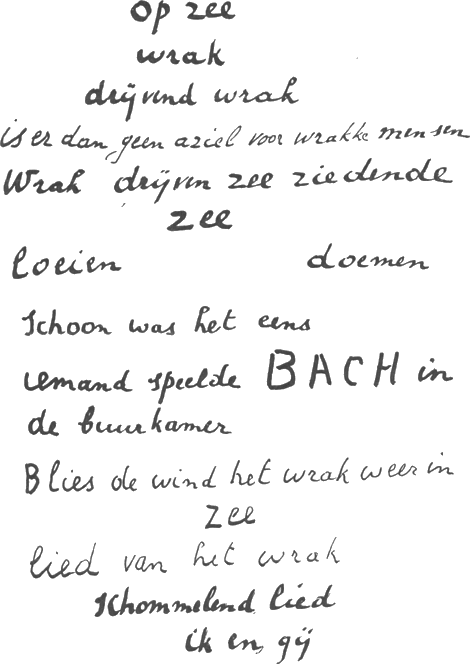 op zee
wrak
drijvend wrak
is er dan geen aziel voor wrakke mensen
Wrak drijven zee ziedende
zee
loeien doemen
Schoon was het eens
iemand speelde BACH in
de buurkamer
Blies de wind het wrak weer in
zee
lied van het wrak
schommelend lied
ik en gij